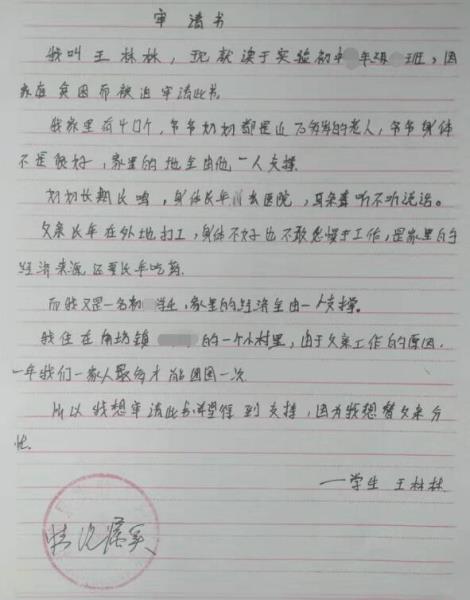 审请书
我叫王林林，现就读于实验初中年级班，因
家庭贫困而被迫审请此书.
我家里有4口个，爷爷奶奶都是近70多岁的老人，爷爷身体
不是很好，家里的地全由他一人支撑.
奶奶长期长鸣，身体长年去医院，耳朵聋听不听说话。
父亲长年在外地打工，身体不好也不敢怠慢于工作，是家里的
经济来源还要长年吃药.
而我又是一名初学生，家里的经济全由一人支撑。
我住在角坊镇的一个小村里，由于父亲工作的原因.
一年我们一家人最多才能团圆一次.
所以我想审请此书.希望得到支撑，因为我想替父亲分
忧.
一学生 王林林
情况属实